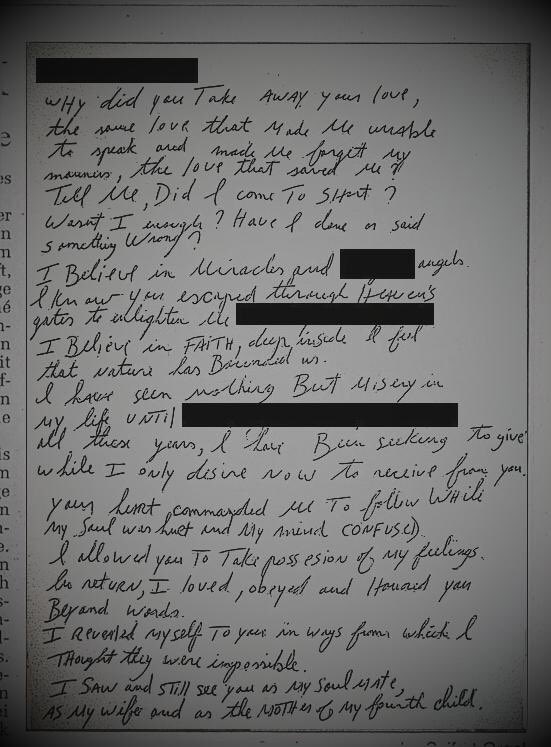 WHY did you Take AWAY your love,
the same love that Made Me unable
to speak and made Me forgett my
manners, the love that saved Me?
Tell Me, Did I come To SHort?
Wasnt I enough? Have I done or said
something Wrong?
I Believe in Miracles and angels.
I know you escaped through Heaven's
gates to enlighten Me
I Believe in FAITH, deep inside I feel
that nature has us.
I have seen nothing But Misery in
my life UNTil
all these years, I have Been seeking to give
while I only desire now to receive from you.
your heart commanded Me To follow While
My Soul was hurt and My mind CONFUSED.
I allowed you To Take possesion of my feelings.
In return, I loved, obeyed and Honored you
Beyand words.
I Revealed Myself To you in ways from which I
THought they were impossible.
I SAW and STill see you as My Soul Mate,
AS My wife and as the MOTHer of My fourth child.
es
er
n
ft,
ge
né
n-
n
it
f-
n
e
is
n
ge
n
n-
e.
n
h
s-
a-
d-
s.
e-
n
ei
k